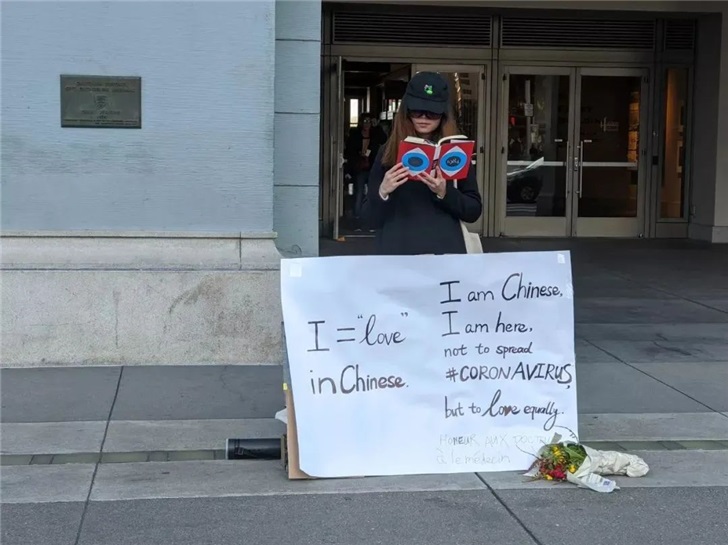 I = "love"
in Chinese.
I am Chinese,
I am here,
not to spread
#CORONAVIRUS
but to love equally.
à le médecin